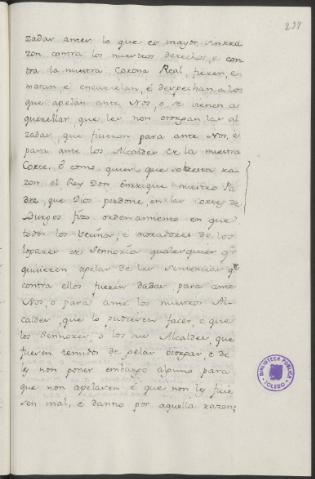 237
zadas, antes lo que es mayor sinrra
zon contra los nuestros derechos, e con
tra la nuestra Corona Real, fieren, e
matan, e encarcelan, e despechan a los
que apelan ante Nos, o se vienen a
querellar que les non otorgan las al
zadas, que fueron para ante Nos, e
para ante los Alcaldes de la nuestra
Corte. E como quier que sobre esta ra
zon el Rey Don Enrrique nuestro Pa
dre, que Dios perdone, en las Cortes de
Burgos fizo ordenamiento en que
todos los vecinos, e moradores de los
logares de Señorío qualesquier qe
quisieren apelar de las sentencias qe
contra ellos fueren dadas para ante
Nos, o para ante los nuestros Al-
caldes, que lo pudiesen facer, e que
los Señores, o los sus Alcaldes, que
fuesen tenidos de gelas otorgar, e de
les non poner embargo alguno para
que non apelasen, e que non les ficie
sen mal, e danno por aquella razon;
BIBLIOTECA PUBLICA
TOLEDO